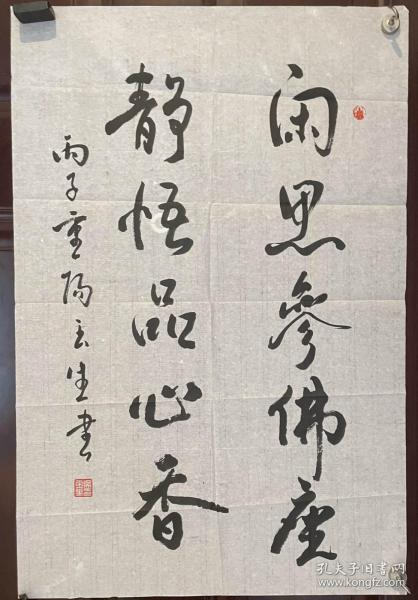 闲思参佛座
静悟品心香
丙子重阳玄生书
孔夫子旧书网
www.kongfz.com